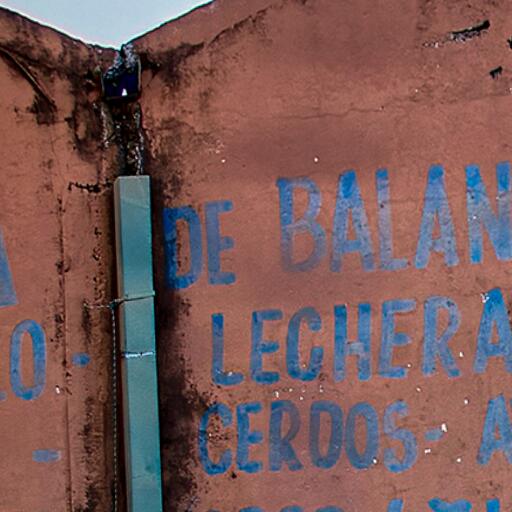 DE BALAN
LECHERA
CERDOS- A
LO -
-